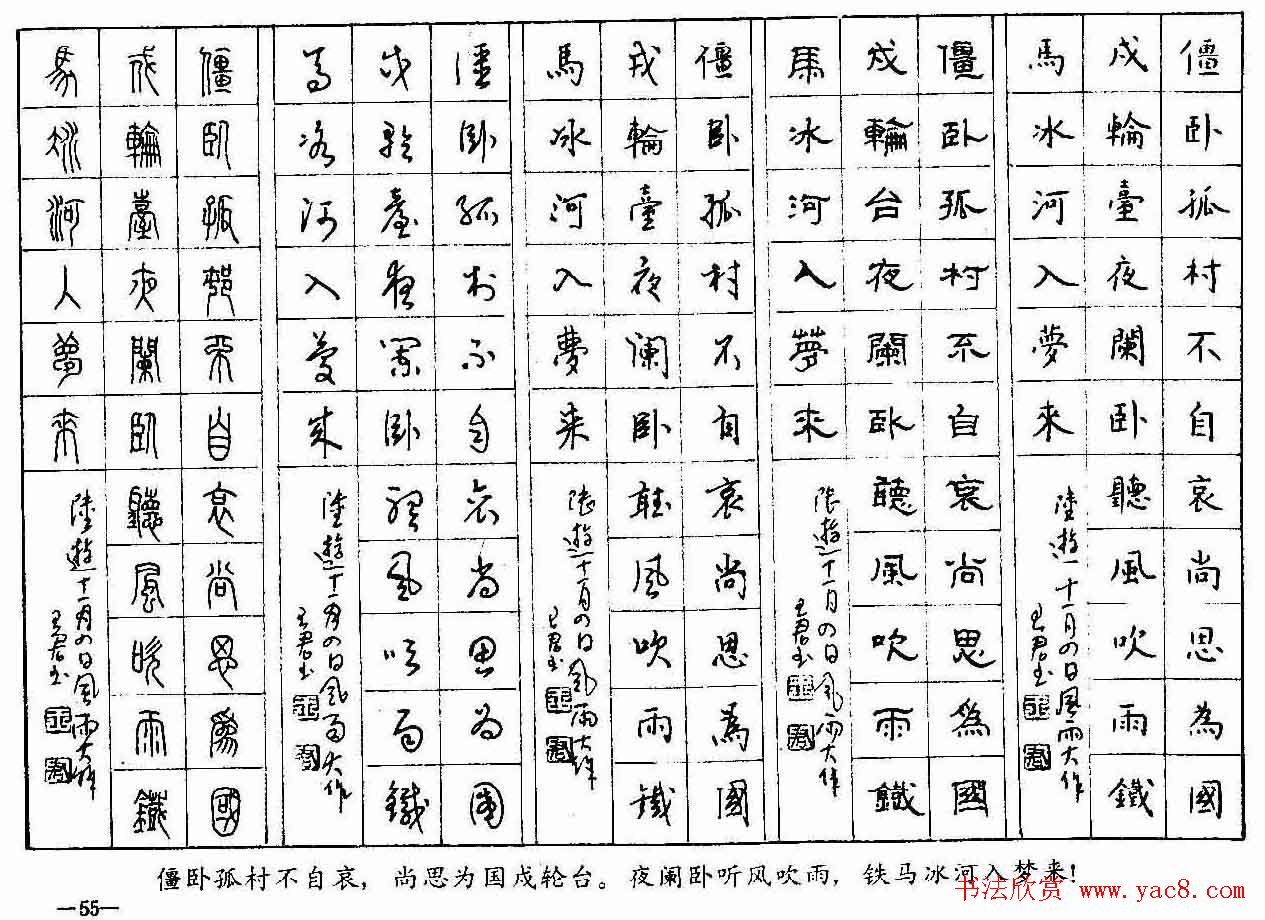 僵卧孤村不自哀尚思為國
戍輪臺夜闌卧聽風吹雨鐵
馬冰河入夢來
陸遊十一月四日風雨大作
王君书
僵卧孤村不自哀尚思為國
戍輪台夜闌卧聽風吹雨鐵
馬冰河入夢來
陸遊十一月四日風雨大作
王君书
僵卧孤村不自哀尚思為國
戍輪臺夜闌卧聽風吹雨鐵
馬冰河入夢来
陸遊十一月四日風雨大作
王君书
僵卧孤村不自哀尚思為國
戍輪臺夜闌卧聽風吹雨鐵
馬冰河入夢來
陸遊十一月四日風雨大作
王君书
僵臥孤邨不自哀尚思為國
戍輪臺夜闌臥聽風吹雨鐵
馬冰河入夢來
陸遊十一月四日風雨大作
王君书
僵卧孤村不自哀，尚思为国戍轮台。夜阑卧听风吹雨，铁马冰河入梦来！
—55—
书法欣赏 www.yac8.com